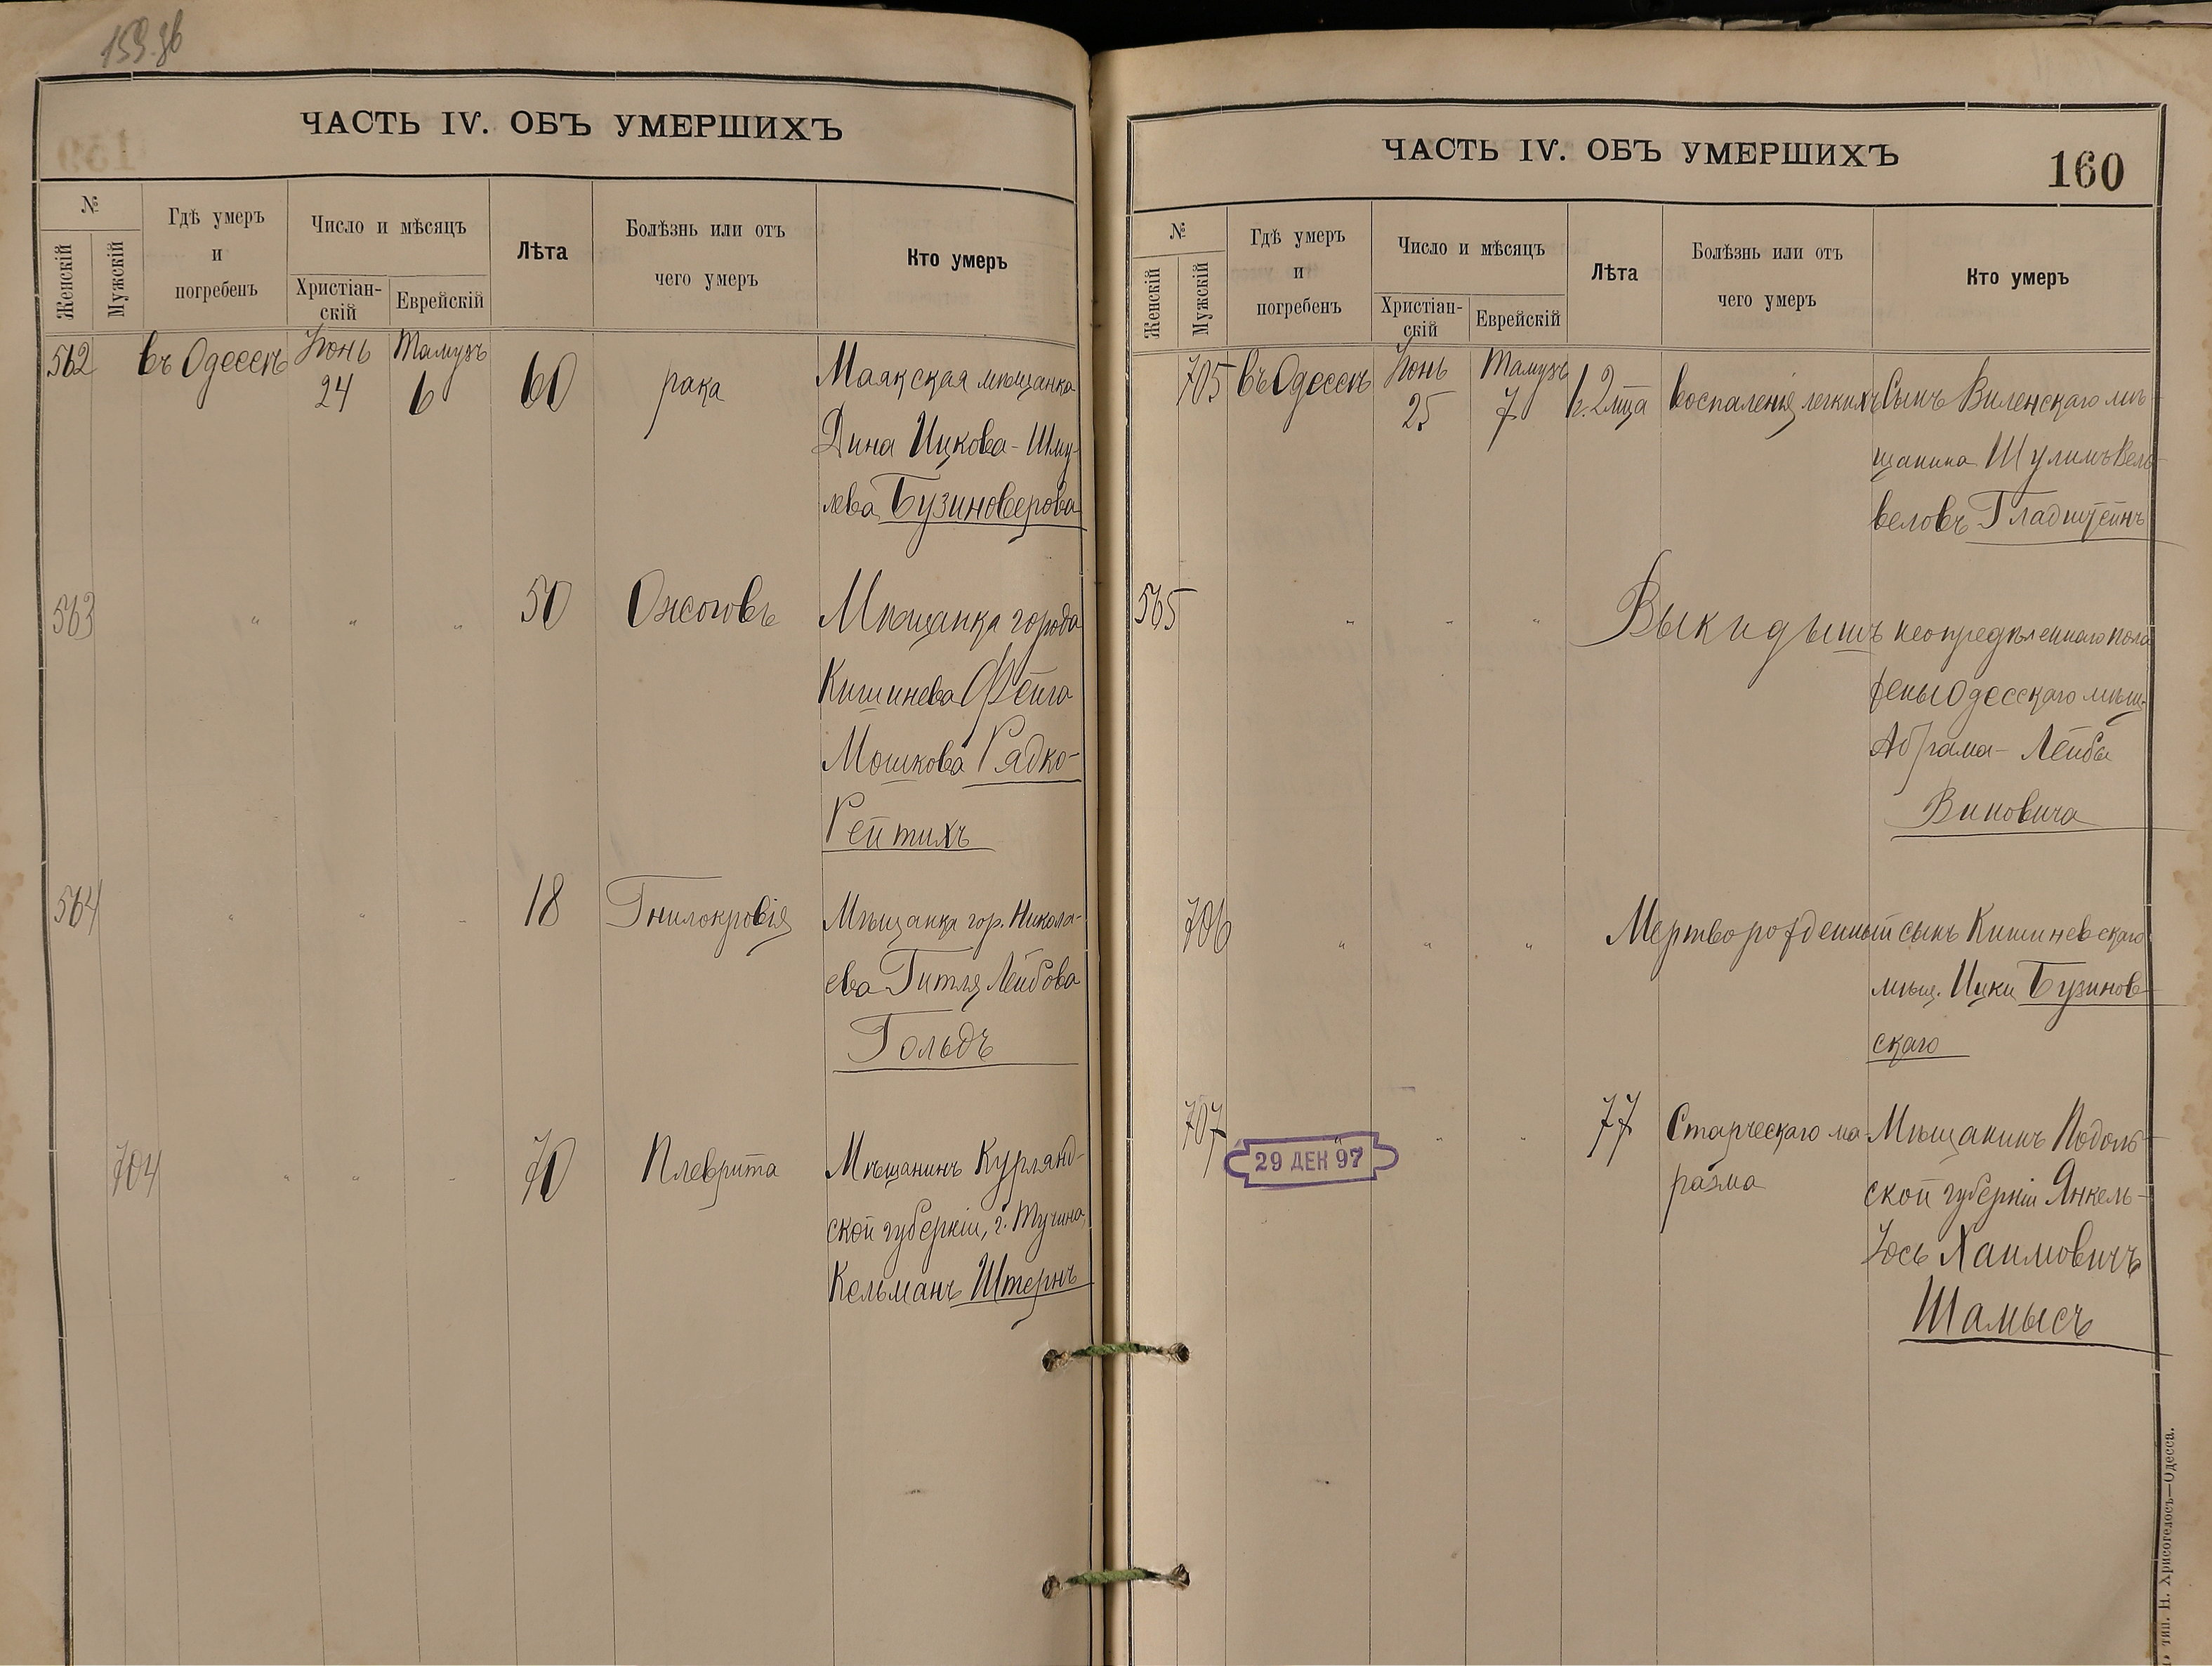 159 об
ЧАСТЬ IV. ОБЪ УМЕРШИХЪ
№
Женскій
Мужскій
Гдѣ умеръ
и
погребенъ
Число и мѣсяцъ
Христіан-
скій
Еврейскій
Лѣта
Болѣзнь или отъ
чего умеръ
Кто умеръ
562 въ Одессѣ Іюнь 24 Тамузъ 6 60 рака Маякская мѣщанка
Дина Ицкова-Шму-
лева Бузиноверова
563 " " " 50 Ожоговъ Мѣщанка города
Кишинева Фейга
Мошкова Рядко-
Рейтихъ
564 " " " 18 Гнилокровія Мѣщанка гор. Никола-
ева Гитля Лейбова
Гольдъ
704 " " " 70 Плеврита Мѣщанинъ Курлянд-
ской губерніи, г. Тучина,
Кельманъ Штернъ
ЧАСТЬ IV. ОБЪ УМЕРШИХЪ
160
№
Женскій
Мужскій
Гдѣ умеръ
и
погребенъ
Число и мѣсяцъ
Христіан-
скій
Еврейскій
Лѣта
Болѣзнь или отъ
чего умеръ
Кто умеръ
705 въ Одессѣ Іюнь 25 Тамузъ 7 1 г. 2 мца воспаленія легкихъ Сынъ Виленскаго мѣ-
щанина Шулимъ Вель-
веловъ Гладштейнъ
565 " " " Выкидышъ неопредѣленнаго пола
жены Одесскаго мѣщ.
Абрама-Лейбы
Виновича
706 " " " Мертворожденный сынъ Кишиневскаго
мѣщ. Ицки Бузинов-
скаго
707 " " " 77 Старческаго ма- Мѣщанинъ Подоль-
разма ской губерніи Янкель-
Іось Хаимовичъ
Шамысъ
29 ДЕК 97
тип. Н. Хрисогелосъ—Одесса.